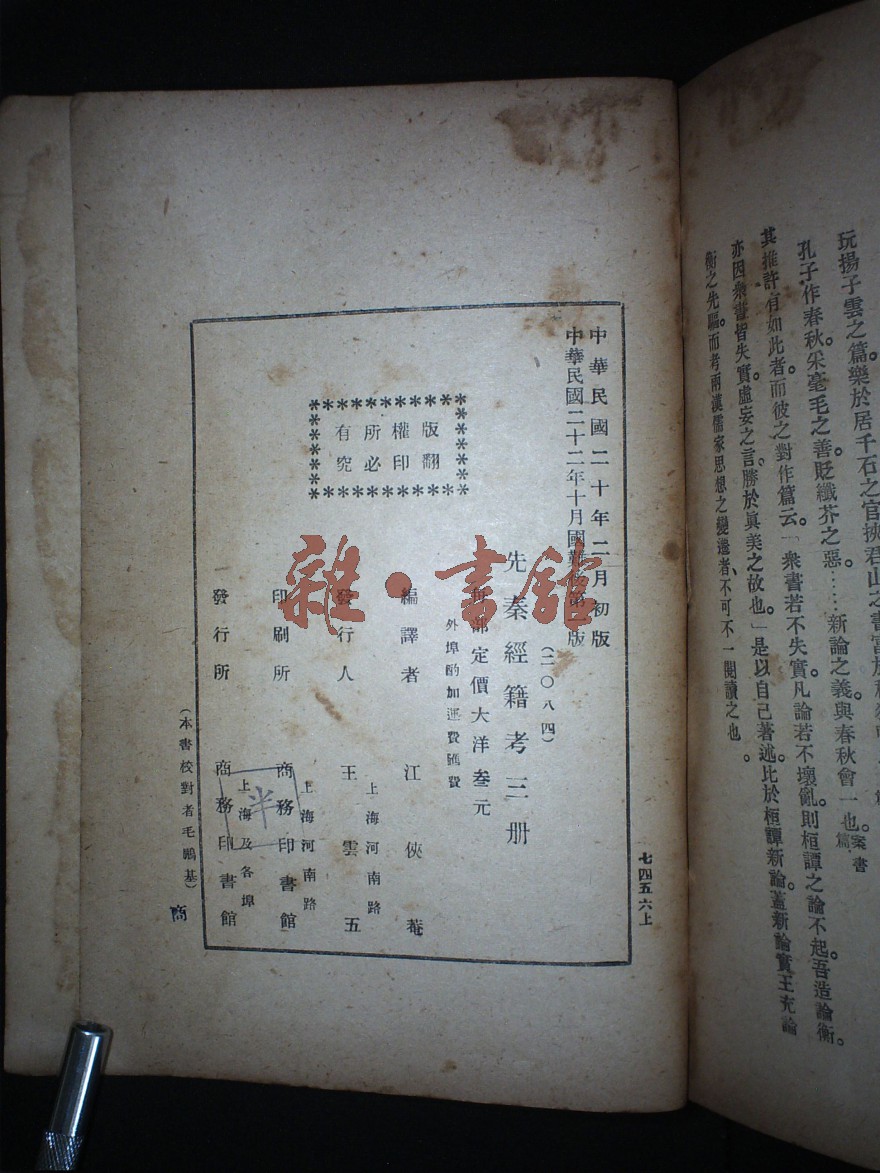 玩揚子雲之篇樂於居千石之官挾君山之書富於積猗
孔子作春秋采毫毛之善貶纖芥之惡。……新論之義與春秋會一也。案書篇
其推許有如此者。而彼之對作篇云。「衆書若不失實凡論若不壞亂。則桓譚之論不起吾造論衡。
亦因衆書皆失實虛妄之言勝於眞美之故也。」是以自己著述。比於桓譚新論。蓋新論實王充論
衡之先驅。而考兩漢儒家思想之變遷者、不可不一閱讀之也。
七四五六上
中華民國二十年二月初版
中華民國二十二年十月國難後第一版
(二〇八四)
先秦經籍考三册
每部定價大洋叁元
外埠酌加運費匯費
版權所有
翻印必究
編譯者 江俠菴
上海河南路
發行人 王雲五
上海河南路
印刷所 商務印書館
上海及各埠
發行所 商務印書館
(本書校對者毛鵬基)
商
半
雜·書館